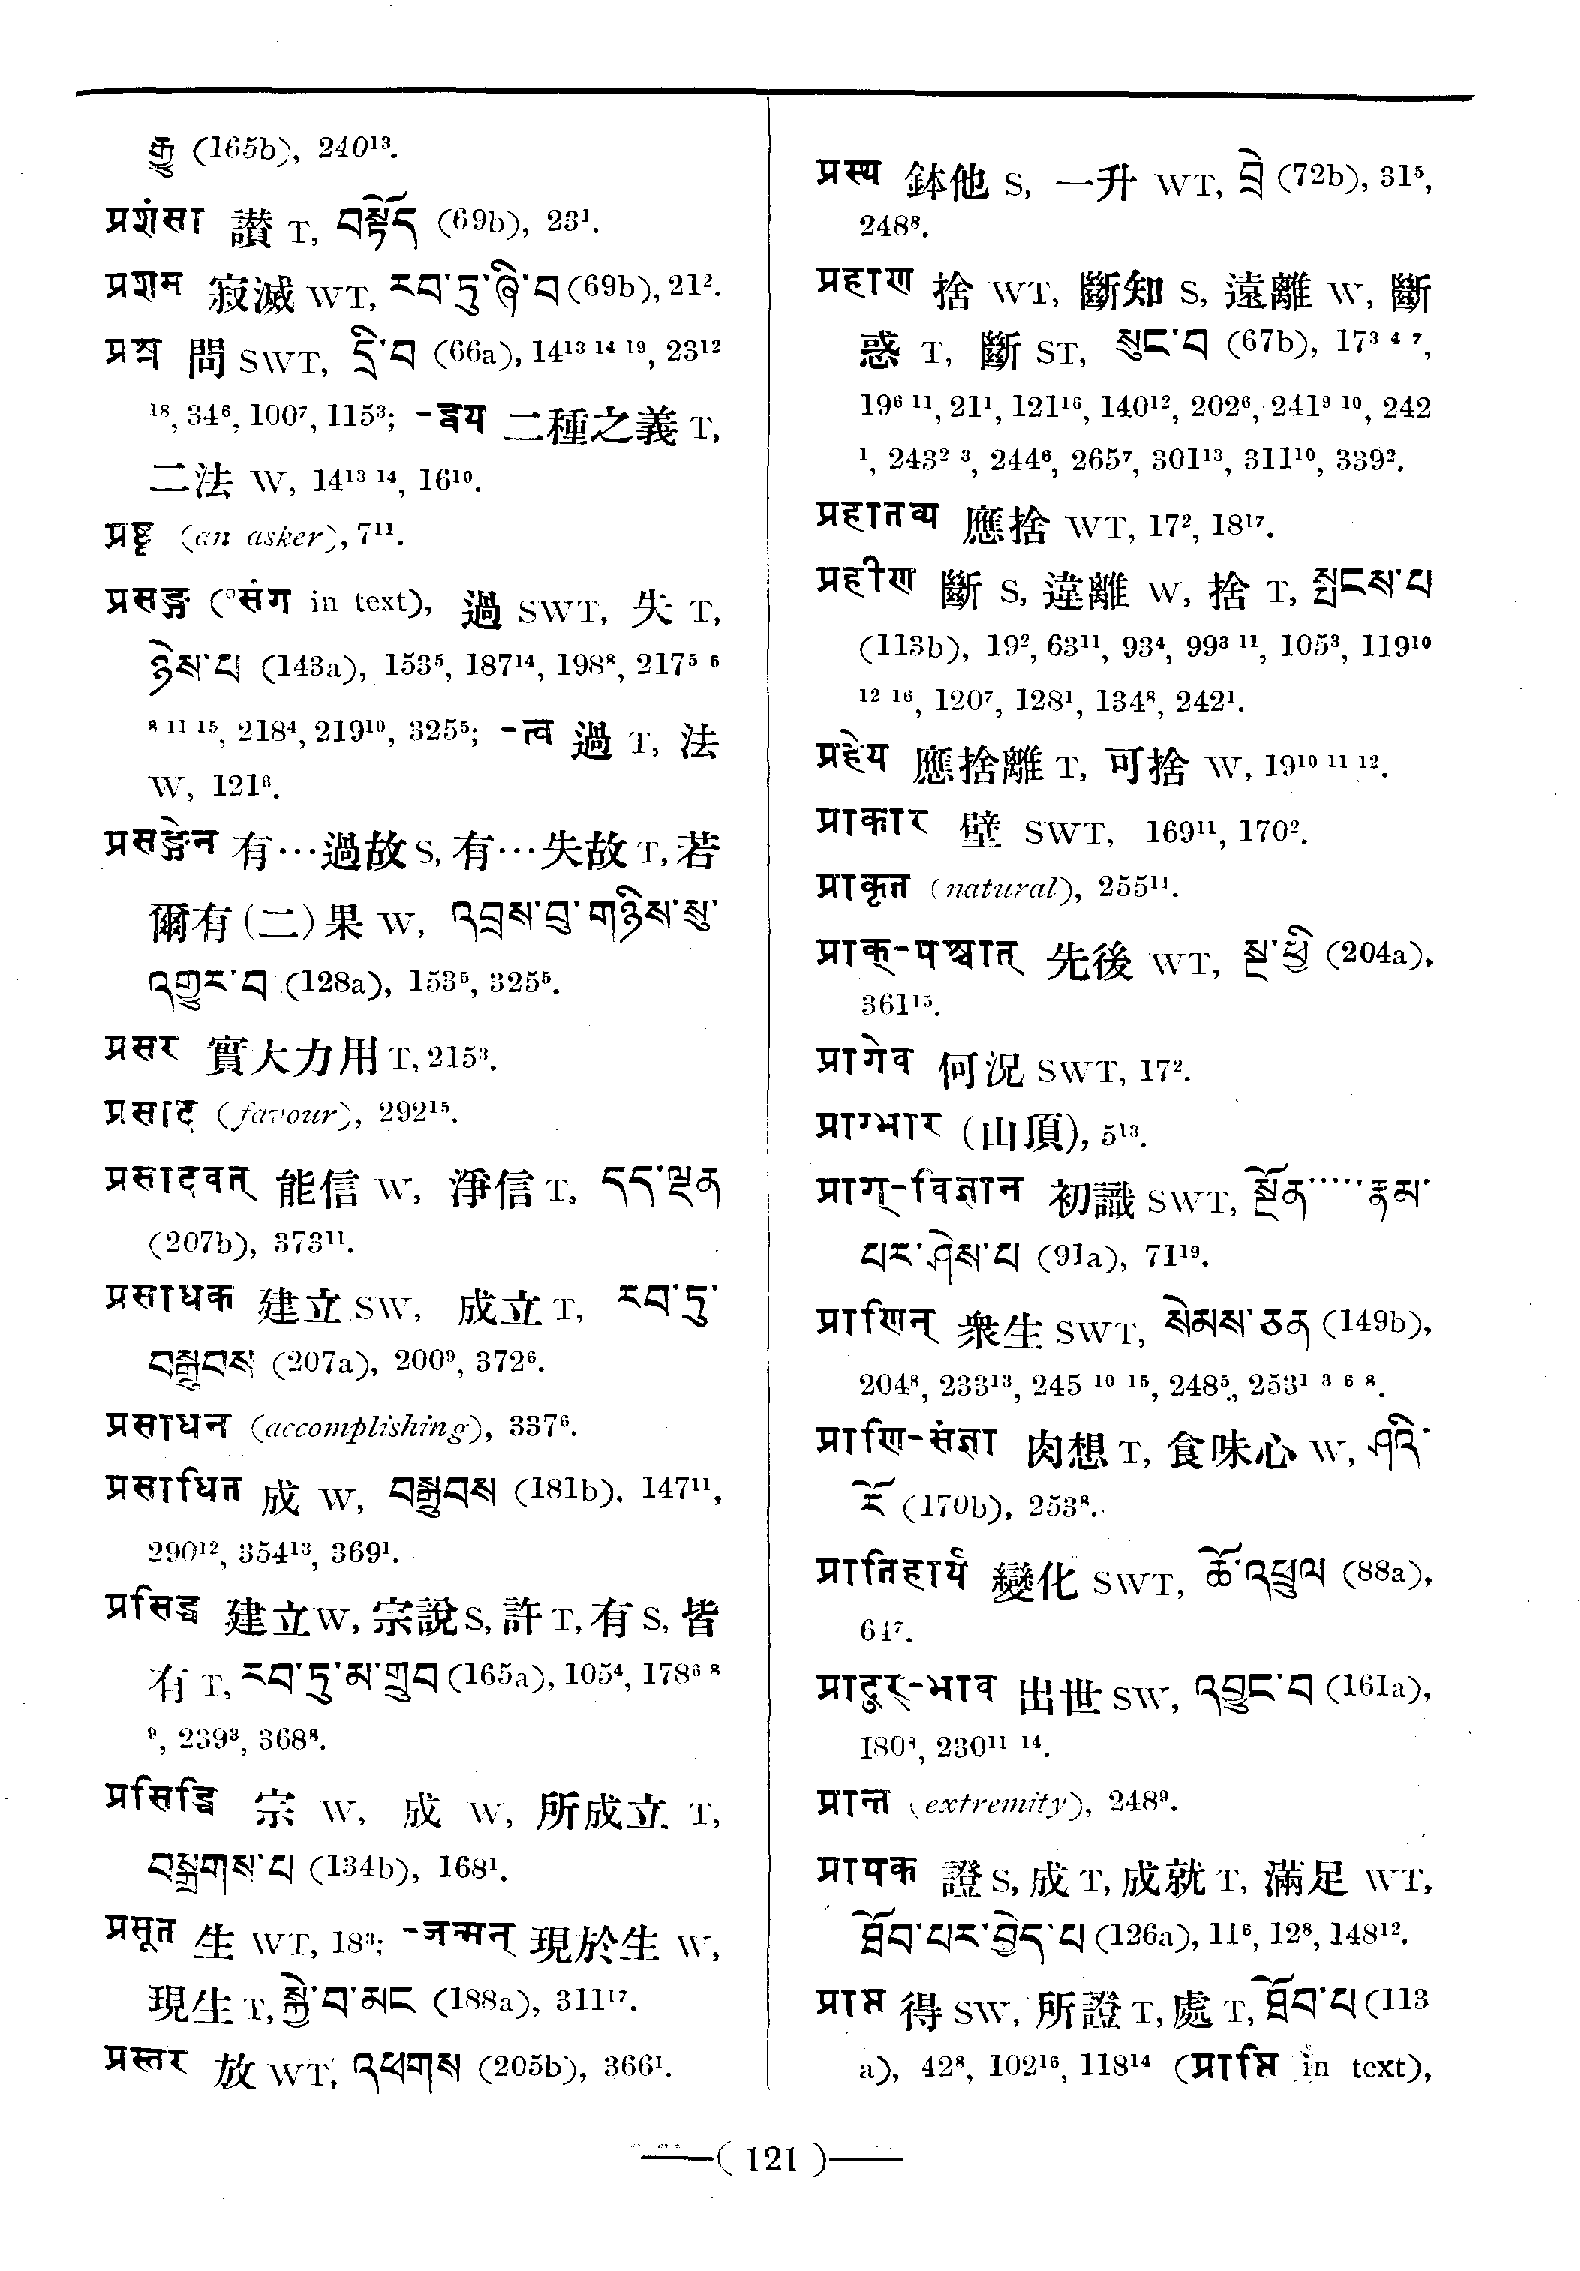 རྒྱུ (165b), 240¹³.
प्रशंसा 讃 T, བསྟོད (69b), 23¹.
प्रशम 寂滅 WT, རབ་ཏུ་ཞི་བ (69b), 21².
प्रश्न 問 SWT, དྲི་བ (66a), 14¹³ ¹⁴ ¹⁹, 23¹²
¹⁸, 34⁶, 100⁷, 115³; -द्वय 二種之義 T,
二法 W, 14¹³ ¹⁴, 16¹⁰.
प्रष्टृ (an asker), 7¹¹.
प्रसङ्ग (°संग in text), 過 SWT, 失 T,
ཉེས་པ (143a), 153⁵, 187¹⁴, 198⁸, 217⁵ ⁶
⁸ ¹¹ ¹⁵, 218⁴, 219¹⁰, 325⁵; -त्व 過 T, 法
W, 121⁶.
प्रसङ्गेन 有…過故 S, 有…失故 T, 若
爾有(二)果 W, འབྲས་བུ་གཉིས་སུ་
འགྱུར་བ (128a), 153⁵, 325⁵.
प्रसर 實大力用 T, 215³.
प्रसाद (favour), 292¹⁵.
प्रसादवत् 能信 W, 淨信 T, དད་ལྡན
(207b), 373¹¹.
प्रसाधक 建立 SW, 成立 T, རབ་ཏུ་
བསྒྲུབས (207a), 200⁹, 372⁶.
प्रसाधन (accomplishing), 337⁶.
प्रसाधित 成 W, བསྒྲུབས (181b), 147¹¹,
290¹², 354¹³, 369¹.
प्रसिद्ध 建立 W, 宗說 S, 許 T, 有 S, 皆
有 T, རབ་ཏུ་མ་གྲུབ (165a), 105⁴, 178⁶ ⁸
⁹, 239³, 368⁸.
प्रसिद्धि 宗 W, 成 W, 所成立 T,
བསྒྲགས་པ (134b), 168¹.
प्रसूत 生 WT, 18³; -जन्मन् 現於生 W,
現生 T, སྐྱེ་བ་མང (188a), 311¹⁷.
प्रस्तर 放 WT, འཕགས (205b), 366¹.
प्रस्थ 鉢他 S, 一升 WT, བྲེ (72b), 31⁵,
248⁸.
प्रहाण 捨 WT, 斷知 S, 遠離 W, 斷
惑 T, 斷 ST, སྤུང་བ (67b), 17³ ⁴ ⁷,
19⁶ ¹¹, 21¹, 121¹⁶, 140¹², 202⁶, 241⁹ ¹⁰, 242
¹, 243² ³, 244⁶, 265⁷, 301¹³, 311¹⁰, 339².
प्रहातव्य 應捨 WT, 17², 18¹⁷.
प्रहीण 斷 S, 違離 W, 捨 T, སྤྲངས་པ
(113b), 19², 63¹¹, 93⁴, 99³ ¹¹, 105³, 119¹⁰
¹² ¹⁶, 120⁷, 128¹, 134⁸, 242¹.
प्रहेय 應捨離 T, 可捨 W, 19¹⁰ ¹¹ ¹².
प्राकार 壁 SWT, 169¹¹, 170².
प्राकृत (natural), 255¹¹.
प्राक्-पश्चात् 先後 WT, སྔ་ཕྱི (204a),
361¹⁵.
प्रागेव 何況 SWT, 17².
प्राग्भार (山頂), 5¹³.
प्राग्-विज्ञान 初識 SWT, སྔོན་····རྣམ་
པར་ཤེས་པ (91a), 71¹⁹.
प्राणिन् 衆生 SWT, སེམས་ཅན (149b),
204⁸, 233¹³, 245 ¹⁰ ¹⁵, 248⁵, 253¹ ³ ⁶ ⁸.
प्राणि-संज्ञा 肉想 T, 食味心 W, ཤའི་
རོ (170b), 253⁸.
प्रातिहार्य 變化 SWT, ཆོ་འཕྲུལ (88a),
64⁷.
प्रादुर्-भाव 出世 SW, འབྱུང་བ (161a),
180⁴, 230¹¹ ¹⁴.
प्रान्त (extremity), 248⁹.
प्रापक 證 S, 成 T, 成就 T, 滿足 WT,
ཐོབ་པར་བྱེད་པ (126a), 11⁶, 12⁸, 148¹².
प्राप्त 得 SW, 所證 T, 處 T, ཐོབ་པ (113
a), 42⁸, 102¹⁶, 118¹⁴ (प्राप्ति in text),
—( 121 )—